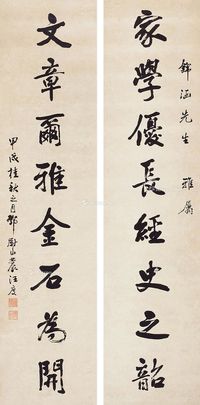 鋅涵先生 雅屬
家學優長經史之韶
文章爾雅金石為開
甲戌桂秋之月